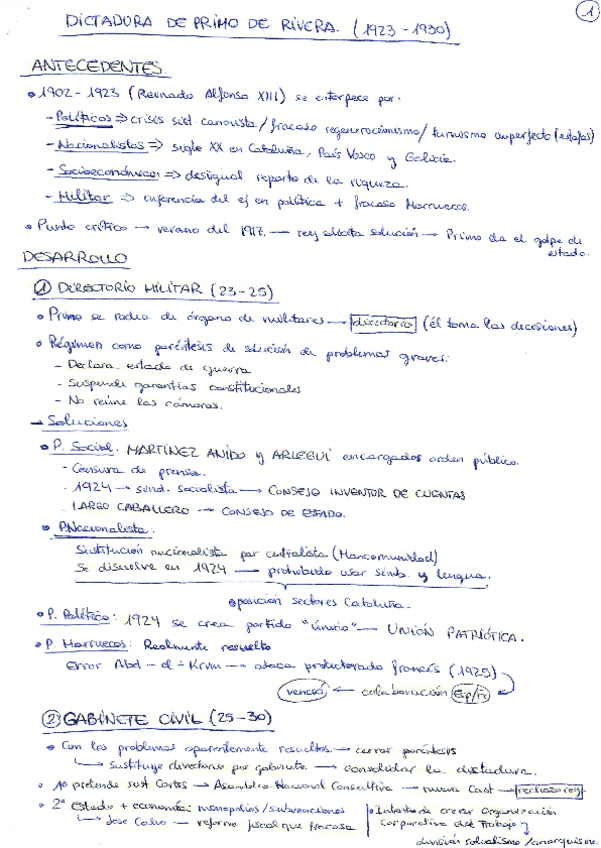 1
DICTADURA DE PRIMO DE RIVERA. (1923-1930)
ANTECEDENTES
• 1902-1923 (Reinado Alfonso XIII) se entorpece por:
- Políticos ⇒ crisis sist. canovista / fracaso regeneracionismo / turnismo imperfecto (estafas)
- Nacionalistas ⇒ siglo XX en Cataluña, País Vasco y Galicia.
- Socioeconómicos ⇒ desigual reparto de la riqueza.
- Militar ⇒ injerencia del ej en política + fracaso Marruecos.
• Punto crítico → verano del 1917. — rey solución → Primo da el golpe de
estado.
DESARROLLO
① DIRECTORIO MILITAR (23-25)
• Primo se rodea de órgano de militares → directorio (él toma las decisiones)
• Régimen como paréntesis de solución de problemas graves:
- Declara estado de guerra
- Suspende garantías constitucionales
- No reúne las cámaras.
→ Soluciones
• P. Social. MARTÍNEZ ANIDO y ARLEGUI encargados orden público.
- Censura de prensa.
- 1924 → sind. socialista → CONSEJO INVENTOR DE CUENTAS
- LARGO CABALLERO → CONSEJO DE ESTADO.
• P. Nacionalista.
Sustitución nacionalista por centralista (Mancomunidad)
Se disuelve en 1924 → prohibido usar símb. y lengua.
oposición sectores Cataluña.
• P. Político: 1924 se crea partido "único" → UNIÓN PATRIÓTICA.
• P. Marruecos: Realmente resuelto
Error Abd-el-Krim → ataca protectorado francés (1925)
venció ← colaboración Esp/Fr
② GABINETE CIVIL (25-30)
• Con los problemas aparentemente resueltos → cerrar paréntesis
↳ sustituye directorio por gabinete → consolidar la dictadura.
• 1º pretende sust Cortes → Asamblea Nacional Consultiva → nueva Const → rechazo rey.
• 2º Estado + economía: monopolios/subvenciones
↳ Jose Calvo → reforma fiscal que fracasa
• Intenta de crear Organización
Corporativa del Trabajo y
división socialismo/anarquismo.